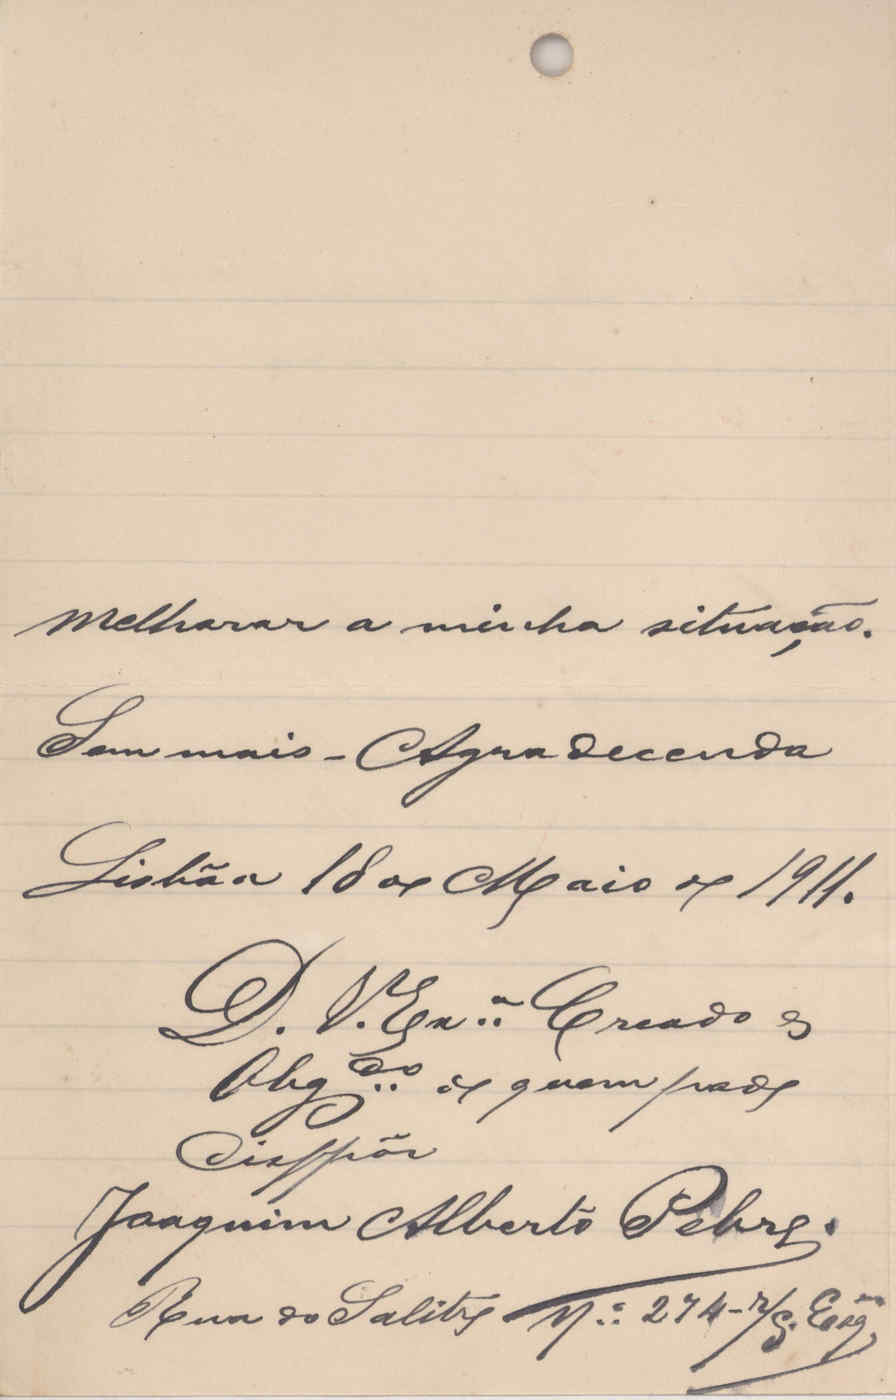 melhorar a minha situação.
Sem mais - Agradecendo
Lisbôa 18 de Maio de 1911.
D. V. Exª Creado e
Obgdo.. de quem pode
disppôr
Joaquim Alberto Pebre.
Rua do Salitre N.º 274-r/